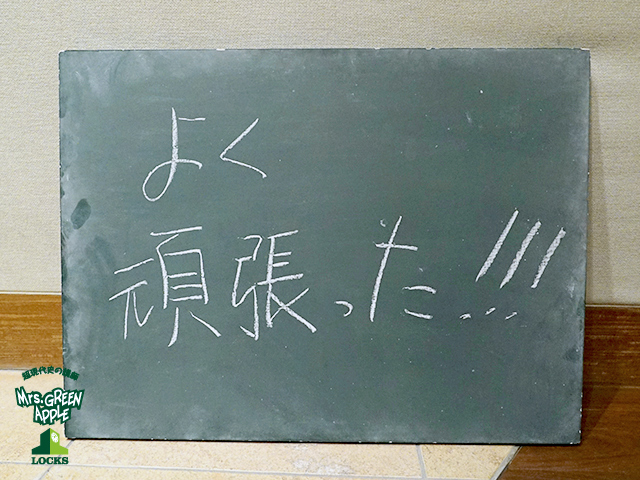 よく
頑張った!!!
超現代史の講師
Mrs. GREEN
APPLE
LOCKS